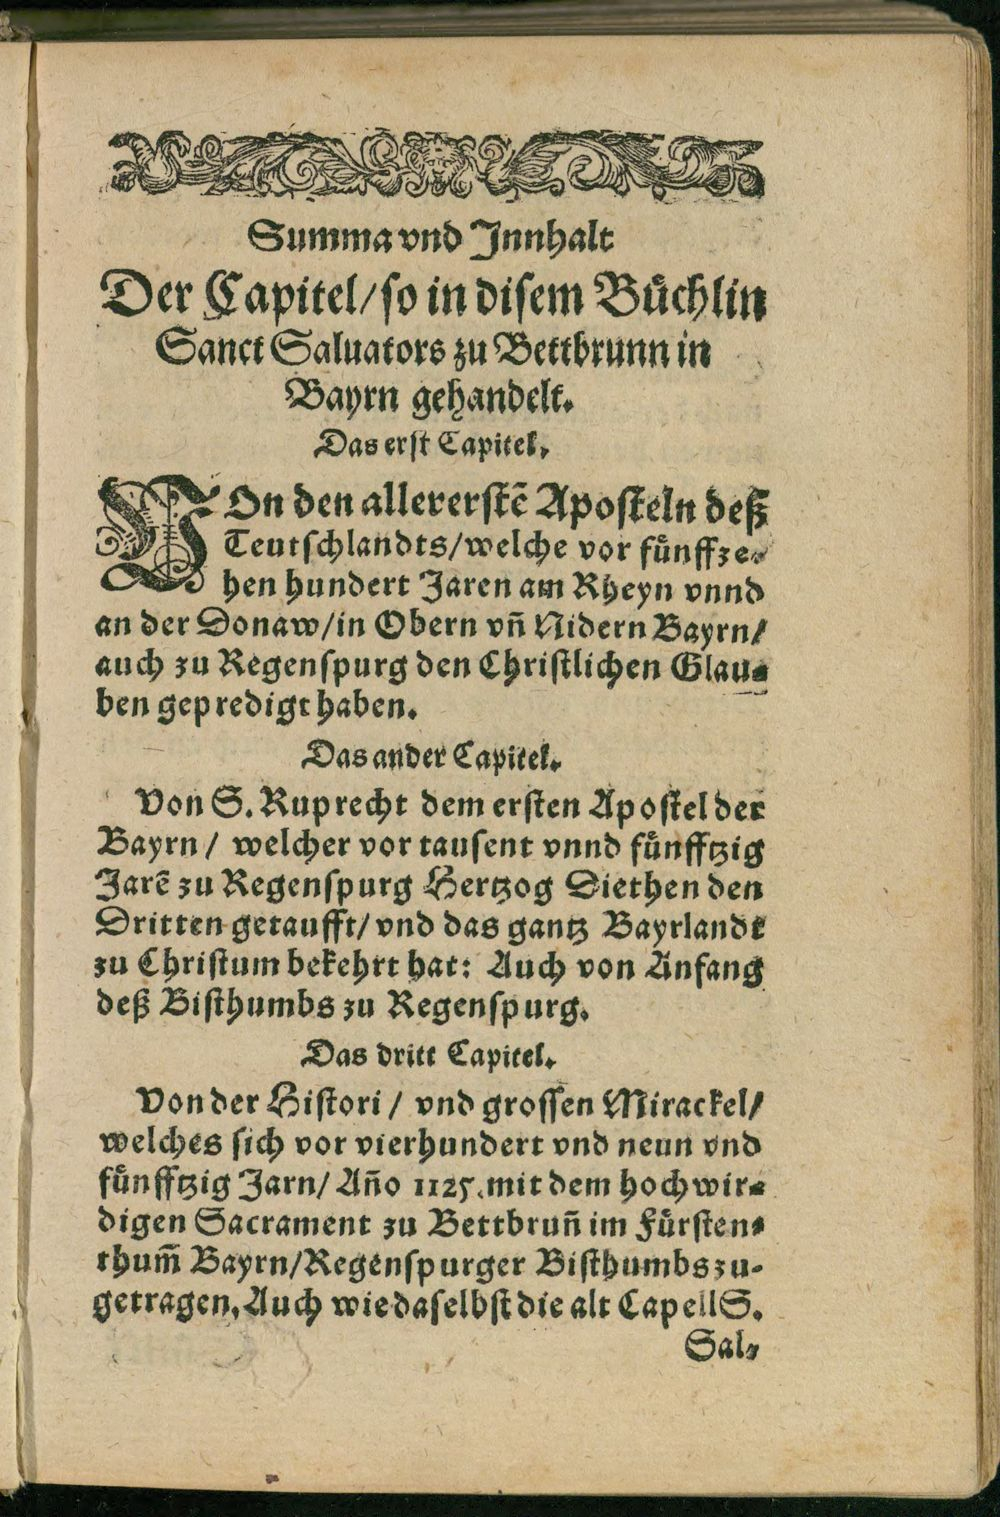 Summa vnd Innhalt
Der Capitel/ so in disem Bůchlin
Sanct Saluators zu Bettbrunn in
Bayrn gehandelt.
Das erst Capitel.
VOn den allererstē Aposteln deß
Teutschlandts/ welche vor fůnffze-
hen hundert Jaren am Rheyn vnnd
an der Donaw/ in Obern vñ Nidern Bayrn/
auch zu Regenspurg den Christlichen Glau-
ben gepredigt haben.
Das ander Capitel.
Von S. Ruprecht dem ersten Apostel der
Bayrn/ welcher vor tausent vnnd fůnfftzig
Jarē zu Regenspurg Hertzog Diethen den
Dritten getaufft/ vnd das gantz Bayrlandt
zu Christum bekehrt hat: Auch von Anfang
deß Bisthumbs zu Regenspurg.
Das dritt Capitel.
Von der Histori/ vnd grossen Mirackel/
welches sich vor vierhundert vnd neun vnd
fůnfftzig Jarn/ Año 1125. mit dem hochwir-
digen Sacrament zu Bettbruñ im Fůrsten-
thum̄ Bayrn/ Regenspurger Bisthumbs zu-
getragen. Auch wie daselbst die alt Capell S.
Sal-